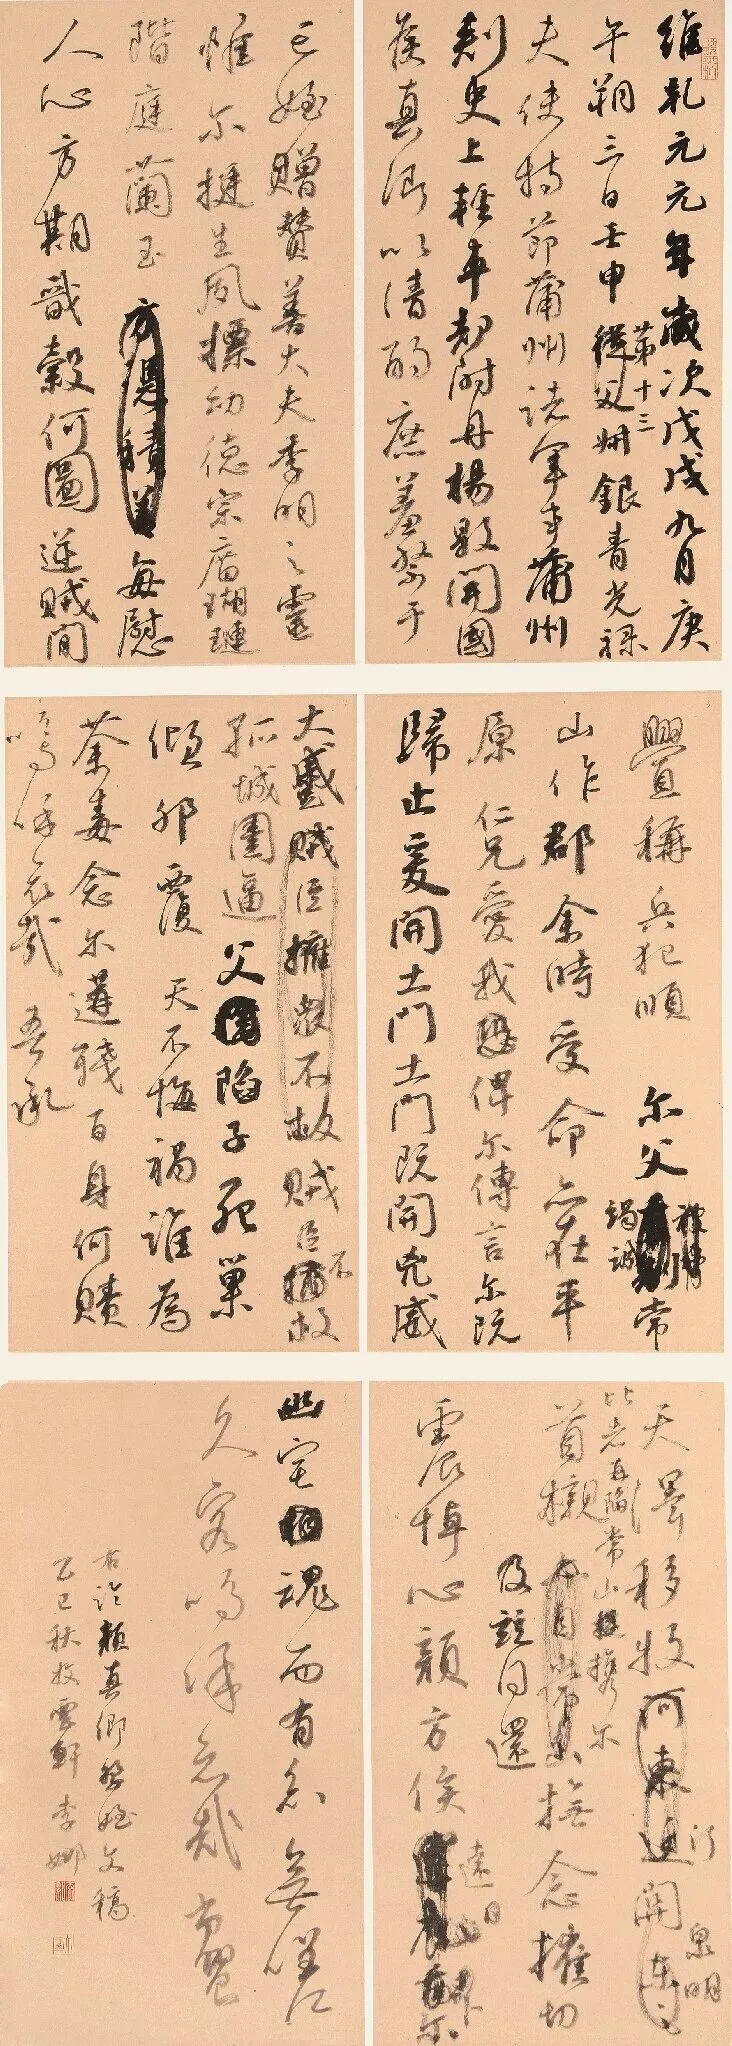 維乾元元年歲次戊戌九月庚
午朔三日壬申第十三從父叔銀青光祿
夫使持節蒲州諸軍事蒲州
刺史上輕車都尉丹楊縣開國
侯真卿以清酌庶羞祭于
亡姪贈贊善大夫季明之靈
惟爾挺生夙標幼德宗廟瑚璉
階庭蘭玉方憑積善每慰
人心方期戩穀何圖逆賊間
釁稱兵犯順 爾父竭誠常
山作郡余時受命亦在平
原仁兄愛我恐俾爾傳言爾既
歸止爰開土門土門既開凶威
大蹙賊臣擁眾不救賊臣不救
孤城圍逼父陷子死巢
傾卵覆天不悔禍誰為
荼毒念爾遘殘百身何贖
嗚呼哀哉吾承
天澤移牧河東近關泉明
比者再陷常山提攜爾
首櫬及茲同還撫念摧切
震悼心顏方俟遠日爾
幽宅魂而有知無嗟
久客嗚呼哀哉尚饗
右臨顏真卿祭姪文稿
乙巳秋於雲軒李娜